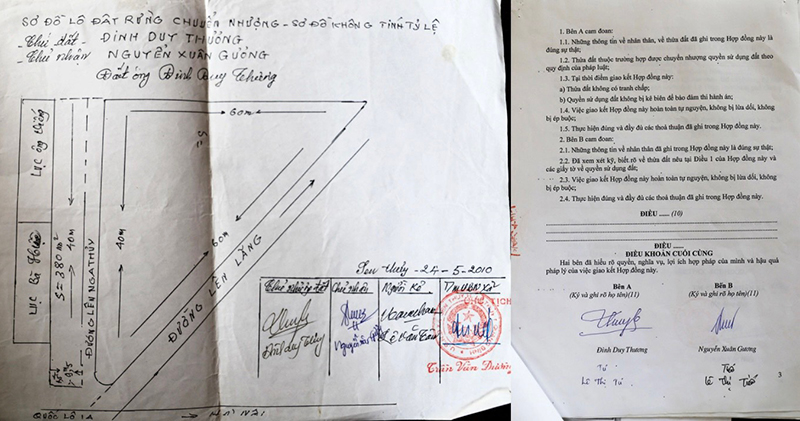 SƠ ĐỒ LÔ ĐẤT RỪNG CHUYỂN NHƯỢNG - SƠ ĐỒ KHÔNG TÍNH TỶ LỆ
- Chủ đất - ĐINH DUY THƯƠNG
- Chủ nhận NGUYỄN XUÂN GƯƠNG
Đất ông Đinh Duy Thương
60m
S=
40m
40m
S = 380 m²
ĐƯỜNG LÊN NGA THỦY
60m
ĐƯỜNG LÊN LĂNG
QUỐC LỘ 1A
HÀ NỘI
24-5-2010
Chủ nhận
CHỦ TỊCH
Đinh duy Thương
Trần Văn Dương
1. Bên A cam đoan:
1.1. Những thông tin về nhân thân, về thửa đất đã ghi trong Hợp đồng này là
đúng sự thật;
1.2. Thửa đất thuộc trường hợp được chuyển nhượng quyền sử dụng đất theo
quy định của pháp luật;
1.3. Tại thời điểm giao kết Hợp đồng này:
a) Thửa đất không có tranh chấp;
b) Quyền sử dụng đất không bị kê biên để bảo đảm thi hành án;
1.4. Việc giao kết Hợp đồng này hoàn toàn tự nguyện, không bị lừa dối, không
bị ép buộc;
1.5. Thực hiện đúng và đầy đủ các thoả thuận đã ghi trong Hợp đồng này.
2. Bên B cam đoan:
2.1. Những thông tin về nhân thân đã ghi trong Hợp đồng này là đúng sự thật;
2.2. Đã xem xét kỹ, biết rõ về thửa đất nêu tại Điều 1 của Hợp đồng này và
các giấy tờ về quyền sử dụng đất;
2.3. Việc giao kết Hợp đồng này hoàn toàn tự nguyện, không bị lừa dối, không
bị ép buộc;
2.4. Thực hiện đúng và đầy đủ các thoả thuận đã ghi trong Hợp đồng này.
ĐIỀU ...... (10)
ĐIỀU ......
ĐIỀU KHOẢN CUỐI CÙNG
Hai bên đã hiểu rõ quyền, nghĩa vụ, lợi ích hợp pháp của mình và hậu quả
pháp lý của việc giao kết Hợp đồng này.
Bên A
(Ký và ghi rõ họ tên)(11)
Bên B
(Ký và ghi rõ họ tên)(11)
Đinh Duy Thương
Nguyễn Xuân Gương
Tú
Lê Thị Tú
3